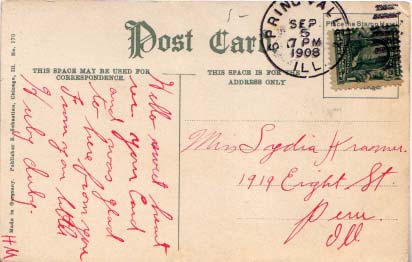 Post Card
THIS SPACE MAY BE USED FOR
CORRESPONDENCE
THIS SPACE IS FOR THE
ADDRESS ONLY
Place the Stamp Here
SPRING VALL
SEP.
5
7 PM
1908
ILL.
No. 170
Chicago, Ill.
Publisher
Made in Germany.
Hello sweet hunt
rec your Card
and was glad
to hear from you
From you
July
HM
Miss Lydia Kramer
1919 Eight St.
Peru
Ill